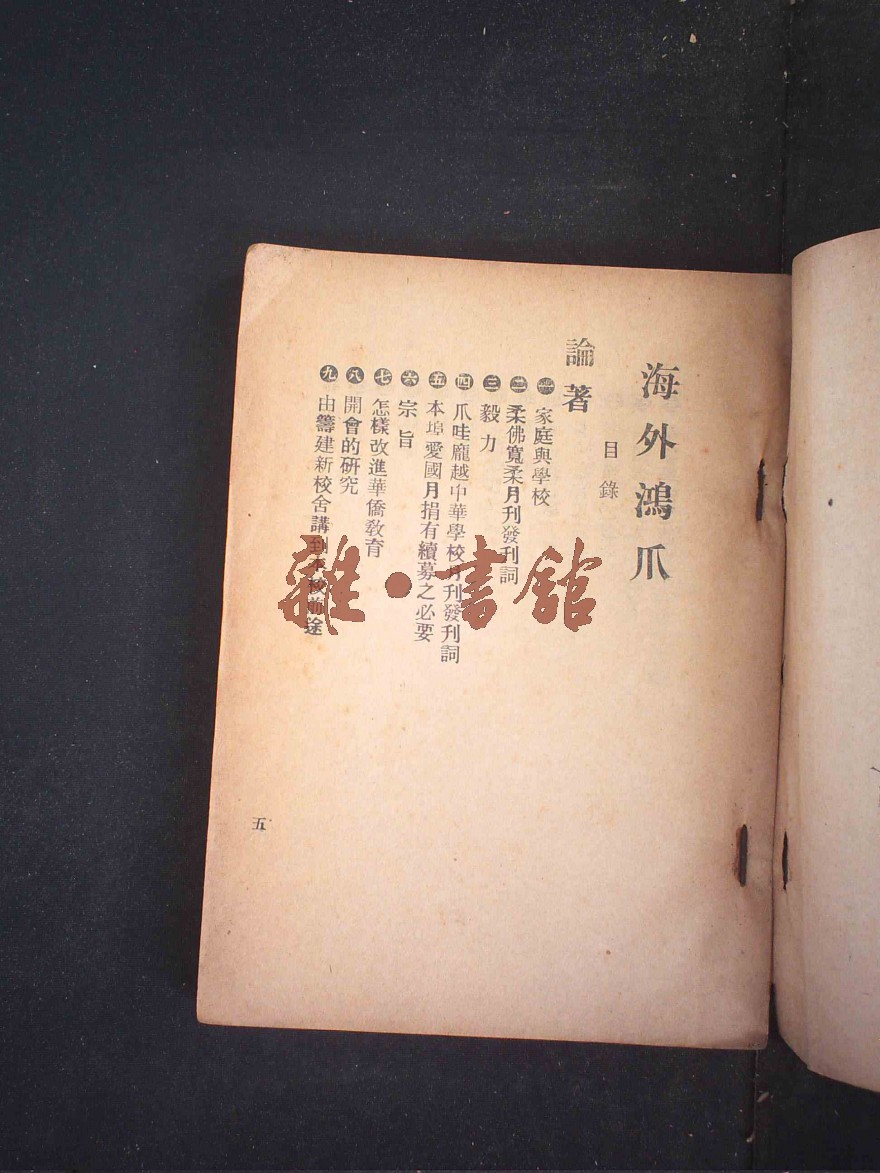 海外鴻爪
目錄
論著
一 家庭與學校
二 柔佛寬柔月刊發刊詞
三 毅力
四 爪哇龐越中華學校月刊發刊詞
五 本埠愛國月捐有續募之必要
六 宗旨
七 怎樣改進華僑教育
八 開會的研究
九 由籌建新校舍講到本校前途
五
雜·書館